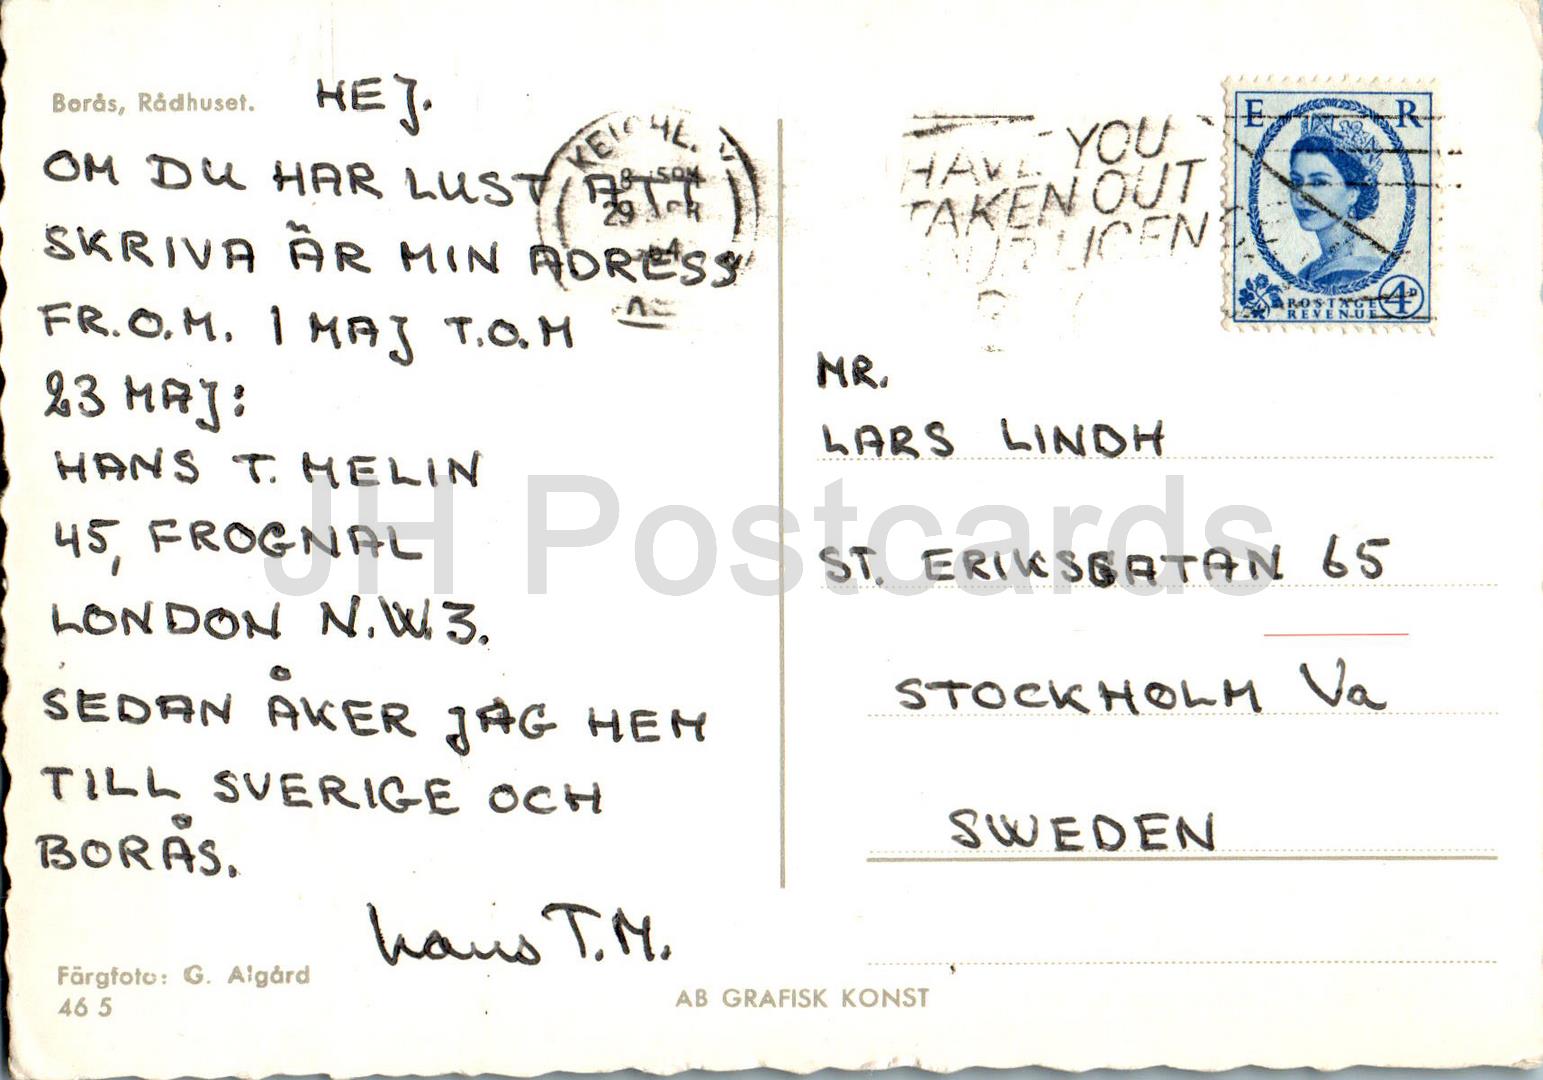 Borås, Rådhuset.
HEJ.
OM DU HAR LUST ATT
SKRIVA ÄR MIN ADRESS
FR.O.M. 1 MAJ T.O.M
23 MAJ:
HANS T. MELIN
45, FROGNAL
LONDON N.W.3.
SEDAN ÅKER JAG HEM
TILL SVERIGE OCH
BORÅS.
Hans T.M.
Färgfoto: G. Algård
46 5
AB GRAFISK KONST
HAVE YOU
TAKEN OUT
E R
POSTAGE
REVENUE
4D
MR.
LARS LINDH
ST. ERIKSGATAN 65
STOCKHOLM Va
SWEDEN
JH Postcards